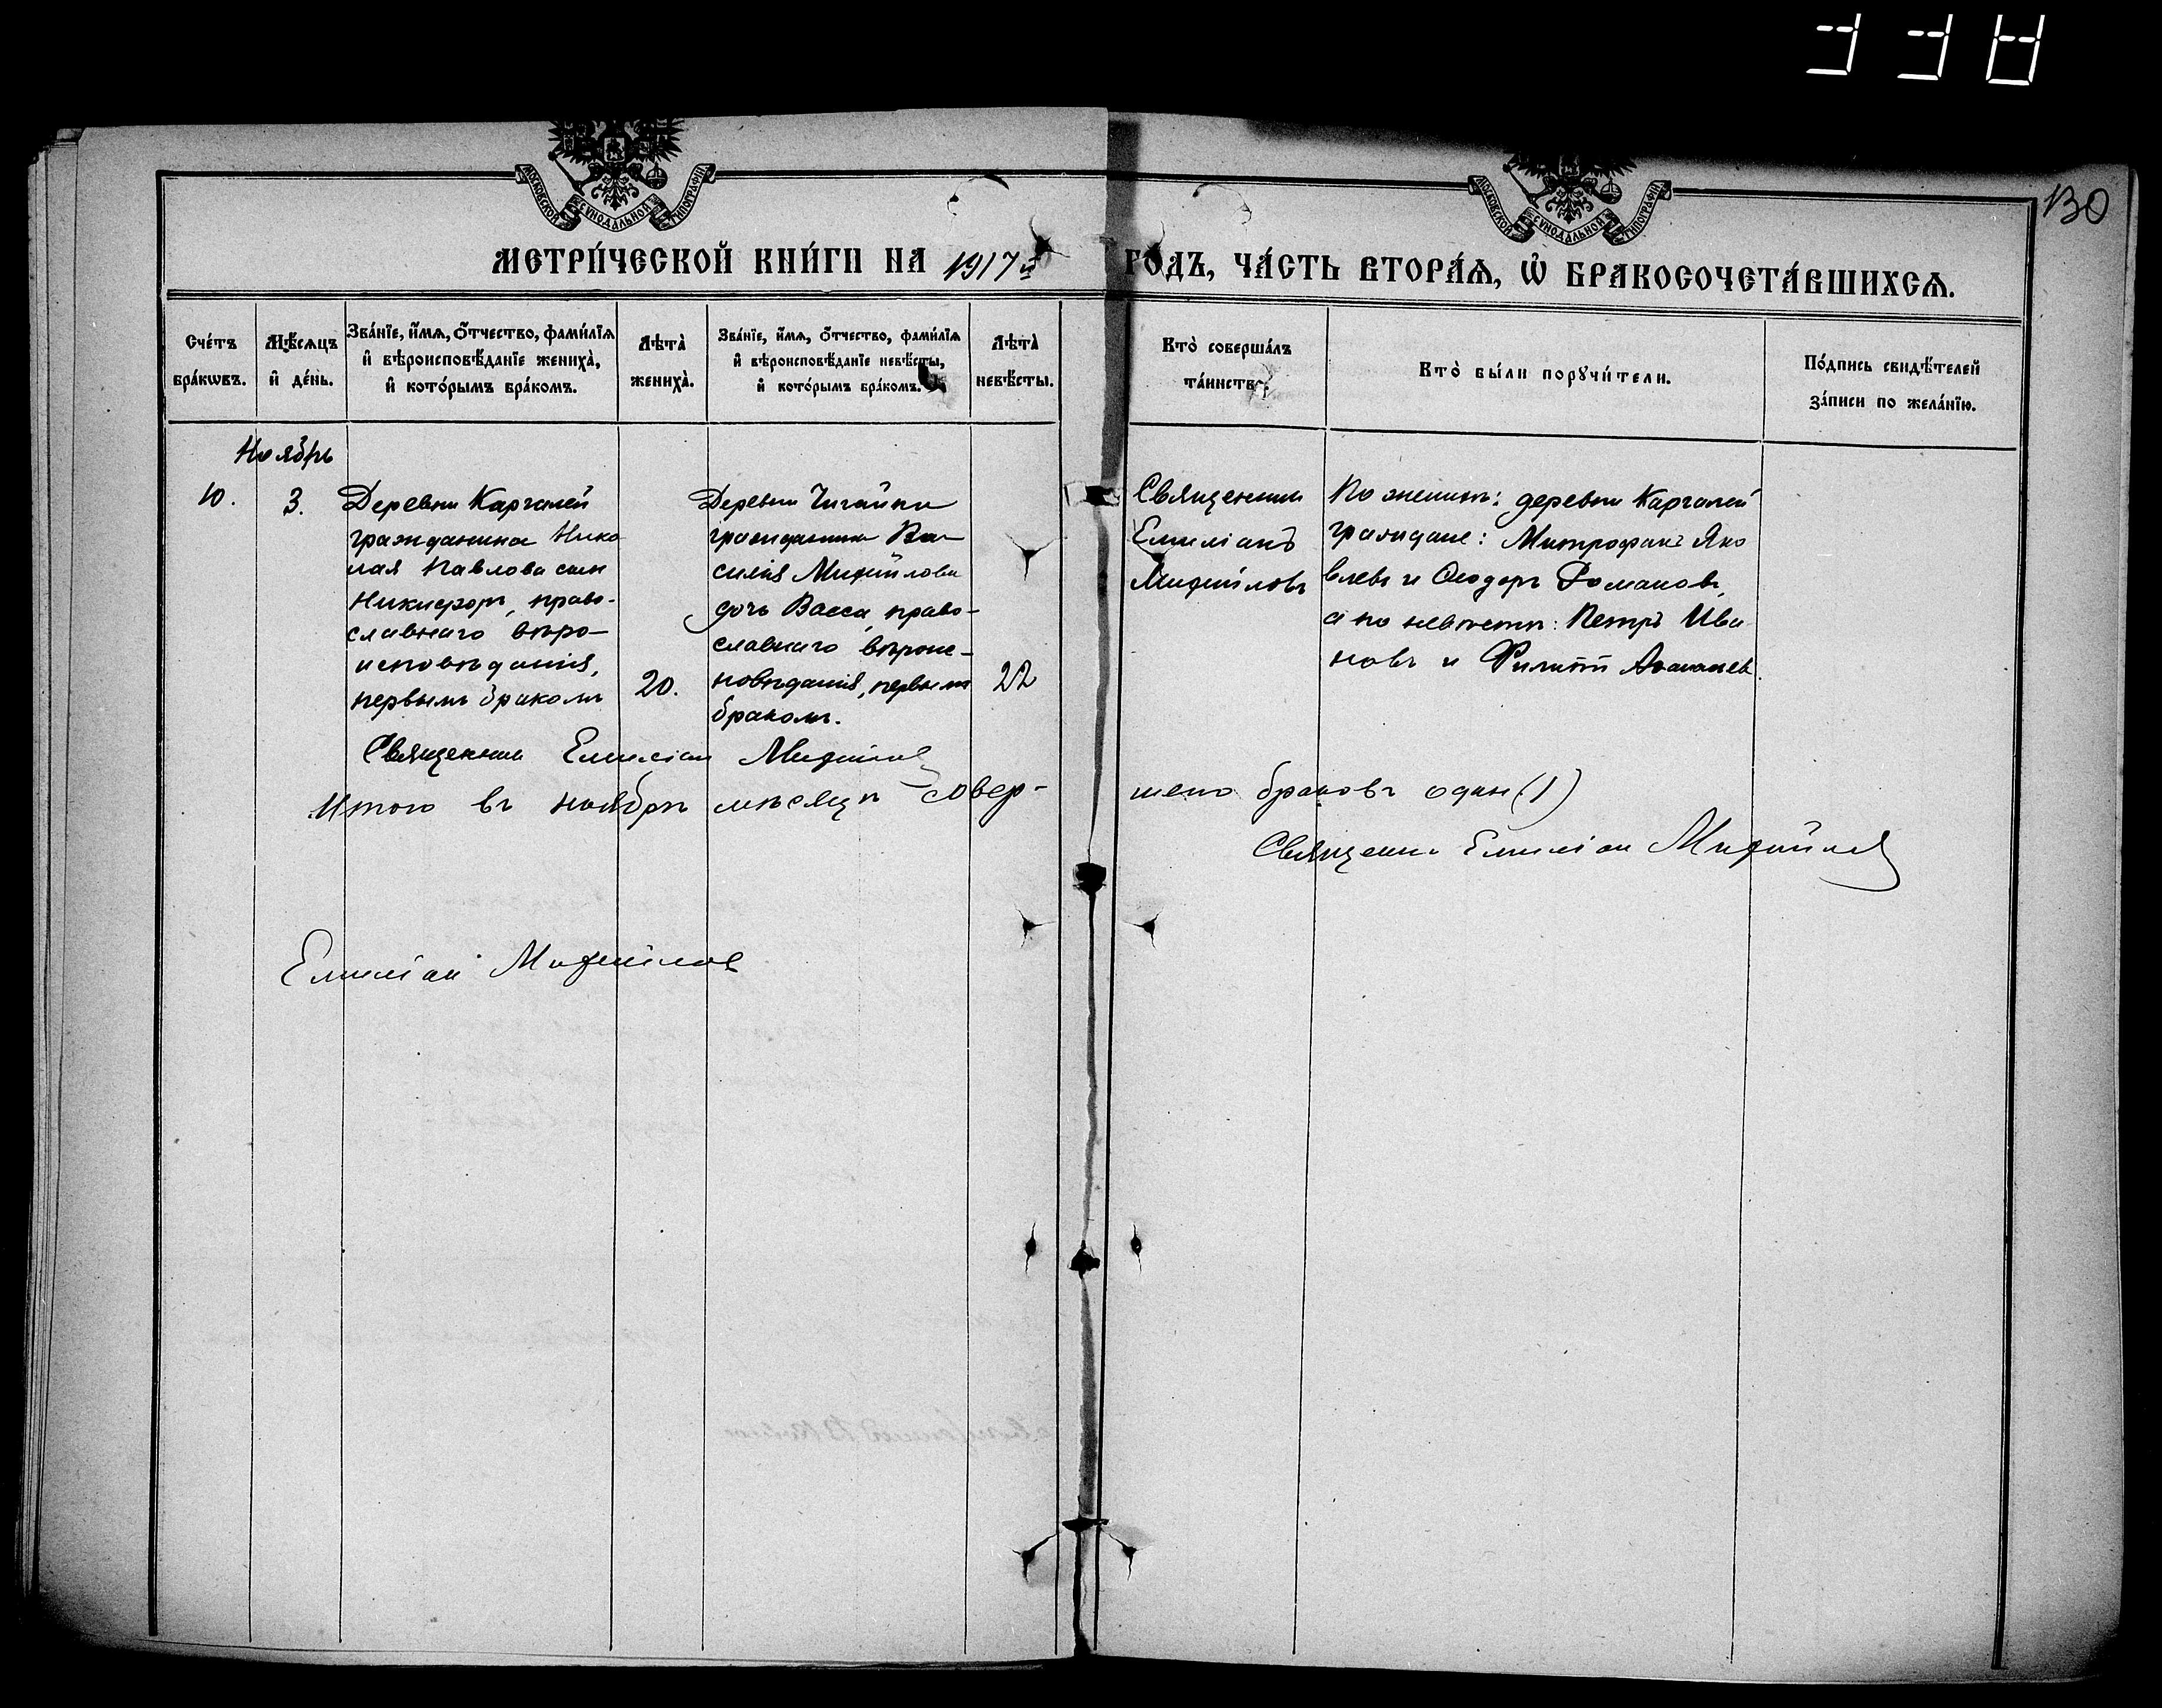 338
130
МОСКОВСКОЙ СѴНОДАЛЬНОЙ ТИПОГРАФІИ
МОСКОВСКОЙ СѴНОДАЛЬНОЙ ТИПОГРАФІИ
МЕТРИ́ЧЕСКОЙ КНИ́ГИ НА 1917й ГО́ДЪ, ЧА́СТЬ ВТОРА́Ѧ, Ѽ БРАКОСОЧЕТА́ВШИХСѦ.
Сче́тъ бра́кωвъ.
Мѣ́сѧцъ и҆ де́нь.
Зва́нїе, и҆́мѧ, ѻ҆́тчество, фами́лїѧ и҆ вѣроисповѣ́данїе жениха̀, и҆ кото́рымъ бра́комъ.
Лѣта̀ жениха̀.
Зва́нїе, и҆́мѧ, ѻ҆́тчество, фами́лїѧ и҆ вѣроисповѣ́данїе невѣ́сты, и҆ кото́рымъ бра́комъ.
Лѣта̀ невѣ́сты.
Кто̀ соверша́лъ та́инство.
Кто̀ бы́ли порꙋчи́тели.
По́дпись свидѣ́телей за́писи по жела́нїю.
Ноябрь
10.
3.
Деревни Каргалей
гражданина Нико
лая Павлова сын
Никифоръ, право-
славнаго вѣро-
исповѣданія,
первымъ бракомъ
20.
Деревни Чигайки
гражданина Ва-
силія Михайлова
дочь Васса, право-
славнаго вѣроис-
повѣданія, первымъ
бракомъ.
22
Священник
Емиліанъ
Михайловъ
По женихѣ: деревни Каргалей
граждане: Митрофанъ Яко
влевъ и Ѳеодоръ Романовъ,
а по невѣстѣ: Петръ Ива
новъ и Филиппъ
Священник Емилиан Михайлов
Итого въ ноябрѣ мѣсяцѣ совер-
шено браковъ один (1)
Священник Емилиан Михайлов
Емилиан Михайлов